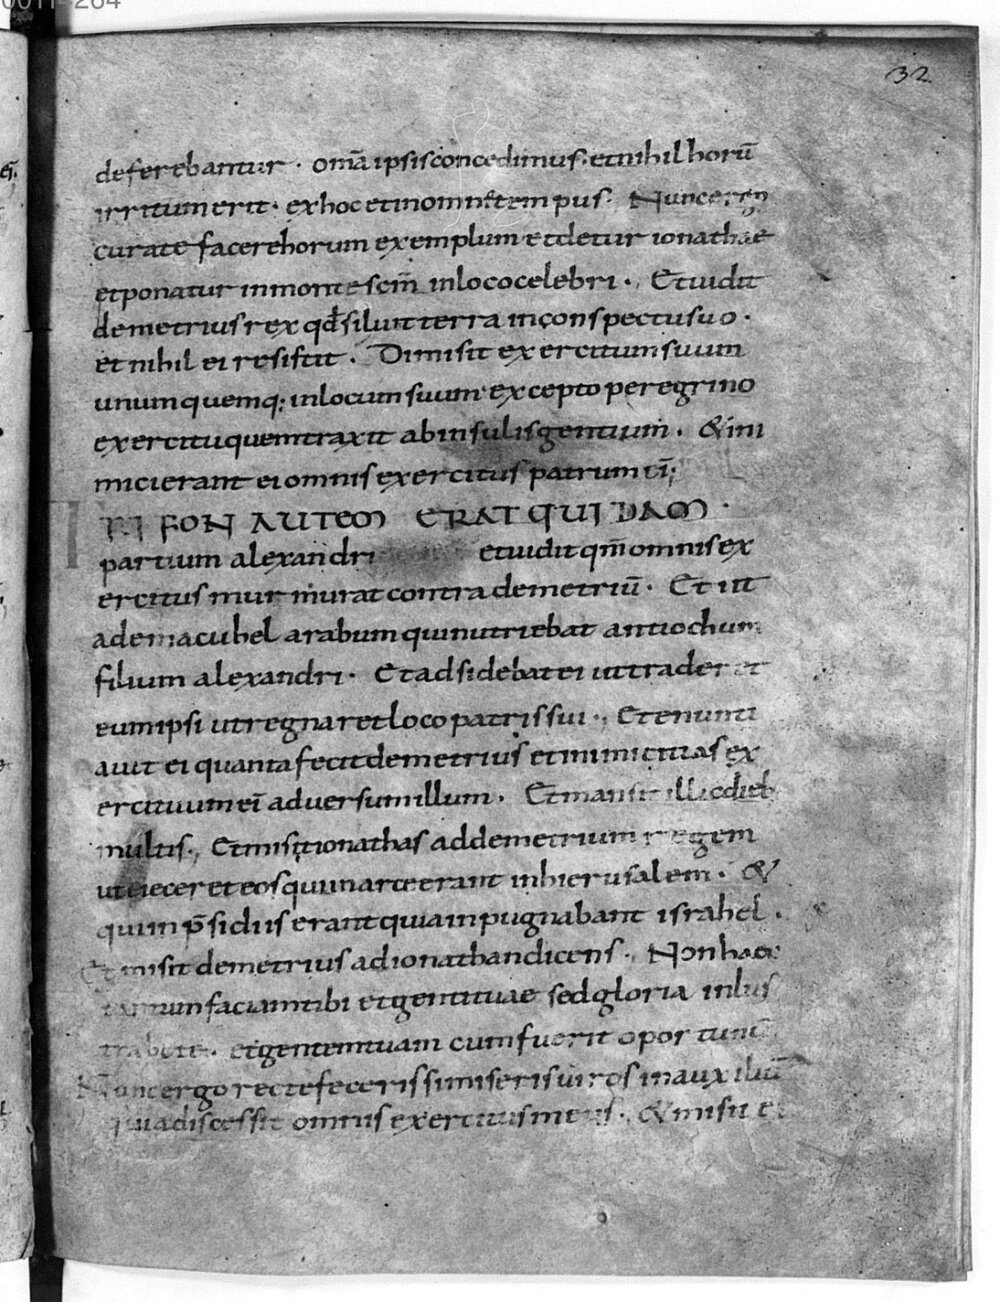 32
deferebantur · omīa ipsis concedimus· et nihil horū
irritum erit· ex hoc et in omne tempus· Nunc ergo
curate facere horum exemplum et detur ionathae
et ponatur in monte scm̄ in loco celebri ·, Et uidit
demetrius rex qđ siluit terra in conspectu suo ·
et nihil ei resistit · Dimisit exercitum suum
unum quemq; in locum suum excepto peregrino
exercitu quem traxit ab insulis gentium · & ini
mici erant ei omnis exercitus patrum ei;
TRIFON AUTEM ERAT QUIDAM ·
partium alexandri et uidit qm̄ omnis ex
ercitus murmurat contra demetriū · Et iit
ad emacuhel arabum qui nutriebat antiochum
filium alexandri · Et adsidebat ei ut traderet
eum ipsi ut regnaret loco patris sui ·, Et enunti
auit ei quanta fecit demetrius et inimicitias ex
ercituum eī aduersum illum · Et mansit illic dieb
multis ·, Et misit ionathas ad demetrium regem
ut eieceret eos qui in arce erant in hierusalem · &
qui in p̄sidiis erant quia inpugnabant israhel ·
Et misit demetrius ad ionathan dicens ·, Non haec
tantum faciam tibi et genti tuae sed gloria inlus
trabo te · et gentem tuam cum fuerit oportunū
Nunc ergo recte feceris si miseris uiros in auxiliū
quia discessit omnis exercitus meus ·, & misit ei